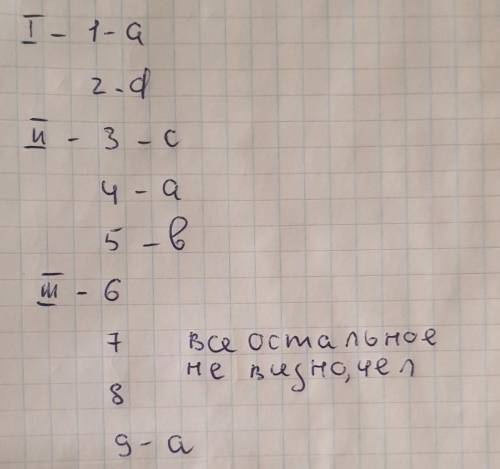 I - 1 - a
2 - d
II - 3 - c
4 - a
5 - в
III - 6
7 все остальное
не видно, чел
8
9 - a